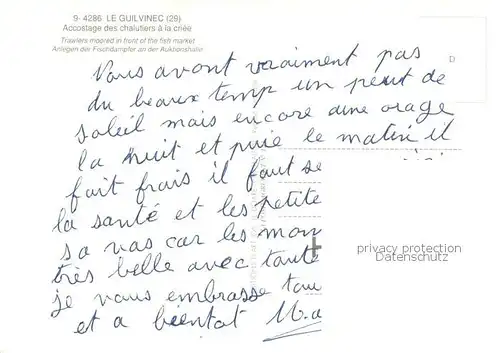 9-4286 LE GUILVINEC (29)
Accostage des chalutiers à la criée
Trawlers moored in front of the fish market
Anlegen der Fischdampfer an der Auktionshalle
D
Vous avont vraiment pas
du beaux temp un peut de
soleil mais encore dune orage
la nuit et puie le matin il
fait frais il faut se
la santé et les petite
sa vas car les mon
très belle avec toute
je vous embrasse tou
et a bientot M.a
privacy protection
Datenschutz